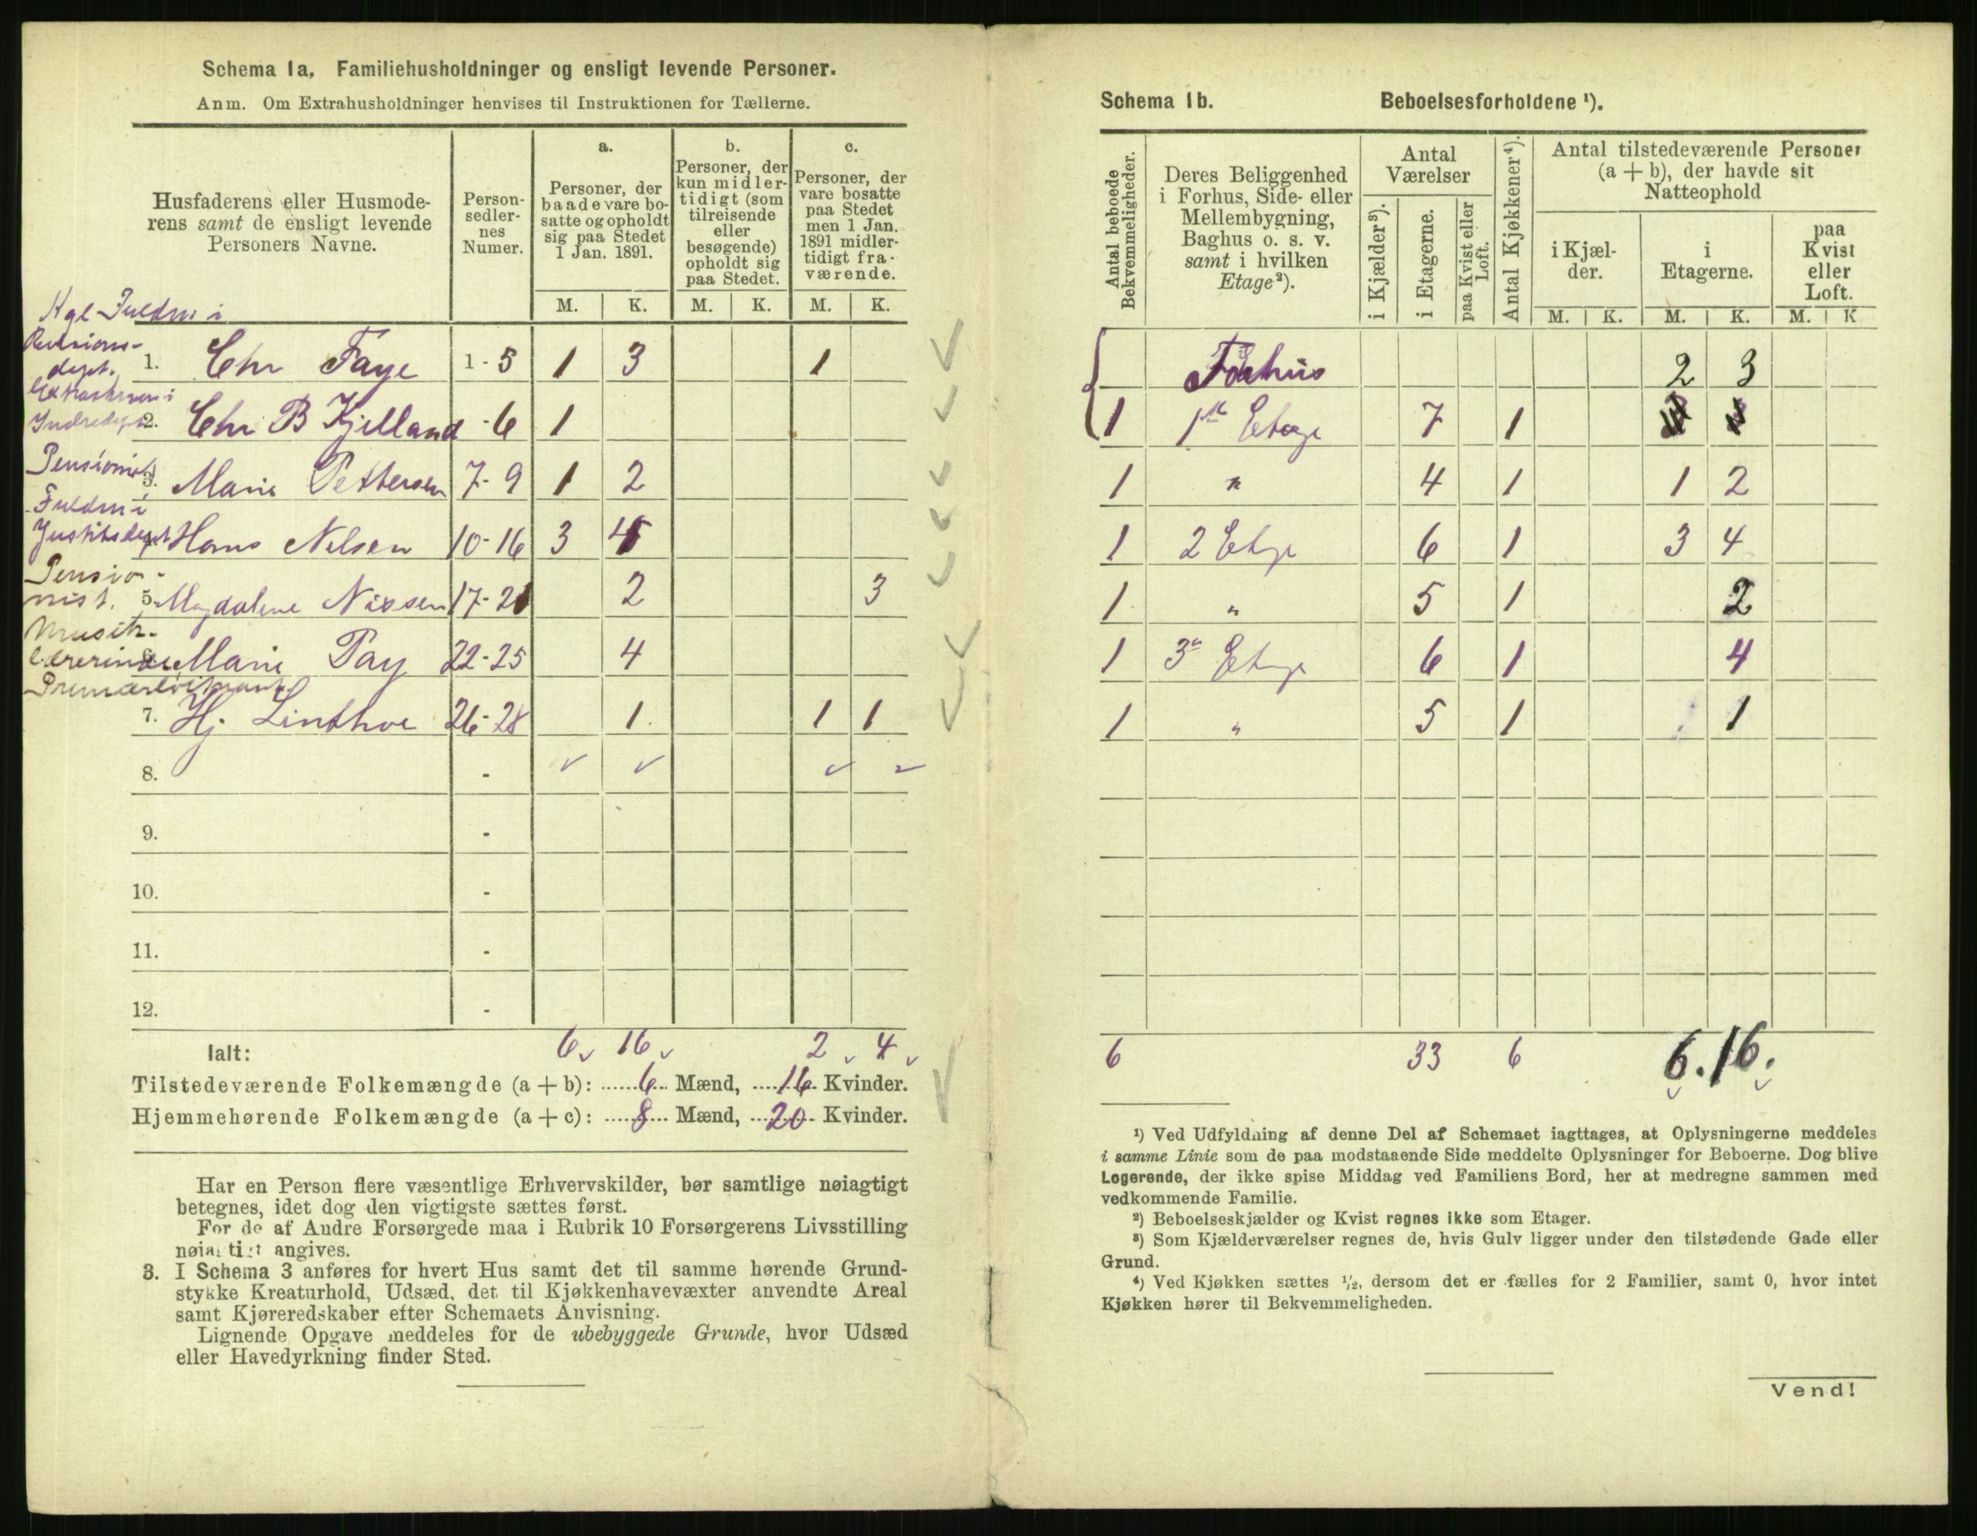 Schema 1a, Familiehusholdninger og ensligt levende Personer.
Anm. Om Extrahusholdninger henvises til Instruktionen for Tællerne.
Husfaderens eller Husmode-
rens samt de ensligt levende
Personers Navne.
Person-
sedler-
nes
Numer.
a.
Personer, der
baade vare bo-
satte og opholdt
sig paa Stedet
1 Jan. 1891.
b.
Personer, der
kun midler-
tidigt (som
tilreisende
eller
besøgende)
opholdt sig
paa Stedet.
c.
Personer, der
vare bosatte
paa Stedet
men 1 Jan.
1891 midler-
tidigt fra-
værende.
M. K. M. K. M. K.
Kgl Fuldm i
Revisions-
dept.
1. Chr Faye 1-5 1 3 1
Indredept
2. Chr B Kjelland -6 1
Pensionist
3. Marie Pettersen 7-9 1 2
Fuldm i
Justitsdept Hans Nilsen 10-16 3 4
Pensio-
nist.
5. Magdalene Nissen 17-21 2 3
Musik-
lærerinde Marie Pay 22-25 4
Premierløitnant
7. Hj. Linthoe 26-28 1. 1 1
8. -
9. -
10. -
11. -
12. -
Ialt: 6 16 2 4
Tilstedeværende Folkemængde (a + b): 6 Mænd, 16 Kvinder.
Hjemmehørende Folkemængde (a + c): 8 Mænd, 20 Kvinder.
Har en Person flere væsentlige Erhvervskilder, bør samtlige nøiagtigt
betegnes, idet dog den vigtigste sættes først.
For de af Andre Forsørgede maa i Rubrik 10 Forsørgerens Livsstilling
nøiagtigt angives.
3. I Schema 3 anføres for hvert Hus samt det til samme hørende Grund-
stykke Kreaturhold, Udsæd, det til Kjøkkenhavevæxter anvendte Areal
samt Kjøreredskaber efter Schemaets Anvisning.
Lignende Opgave meddeles for de ubebyggede Grunde, hvor Udsæd
eller Havedyrkning finder Sted.
Schema 1b. Beboelsesforholdene ¹).
Antal beboede
Bekvemmeligheder.
Deres Beliggenhed
i Forhus, Side- eller
Mellembygning,
Baghus o. s. v.
samt i hvilken
Etage²).
Antal
Værelser
i Kjælder³).
i Etagerne.
paa Kvist eller
Loft.
Antal Kjøkkener⁴).
Antal tilstedeværende Personer
(a + b), der havde sit
Natteophold
i Kjæl-
der.
i
Etagerne.
paa
Kvist
eller
Loft.
M. K. M. K. M. K
Forhus 2 3
1 1ste Etage 7 1
1 " 4 1 1 2
1 2 Etage 6 1 3 4
1 " 5 1 2
1 3e Etage 6 1 4
1 " 5 1 1
6 33 6 6. 16.
¹) Ved Udfyldning af denne Del af Schemaet iagttages, at Oplysningerne meddeles
i samme Linie som de paa modstaaende Side meddelte Oplysninger for Beboerne. Dog blive
Logerende, der ikke spise Middag ved Familiens Bord, her at medregne sammen med
vedkommende Familie.
²) Beboelseskjælder og Kvist regnes ikke som Etager.
³) Som Kjælderværelser regnes de, hvis Gulv ligger under den tilstødende Gade eller
Grund.
⁴) Ved Kjøkken sættes ¹/₂, dersom det er fælles for 2 Familier, samt 0, hvor intet
Kjøkken hører til Bekvemmeligheden.
Vend!